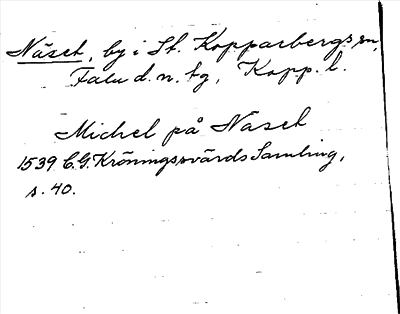 Näset, by i St. Kopparbergs sn,
Falu d. n. tg, Kopp. l.
Michel på Näset
1539 C.G. Kröningssvärds Samling,
s. 40.